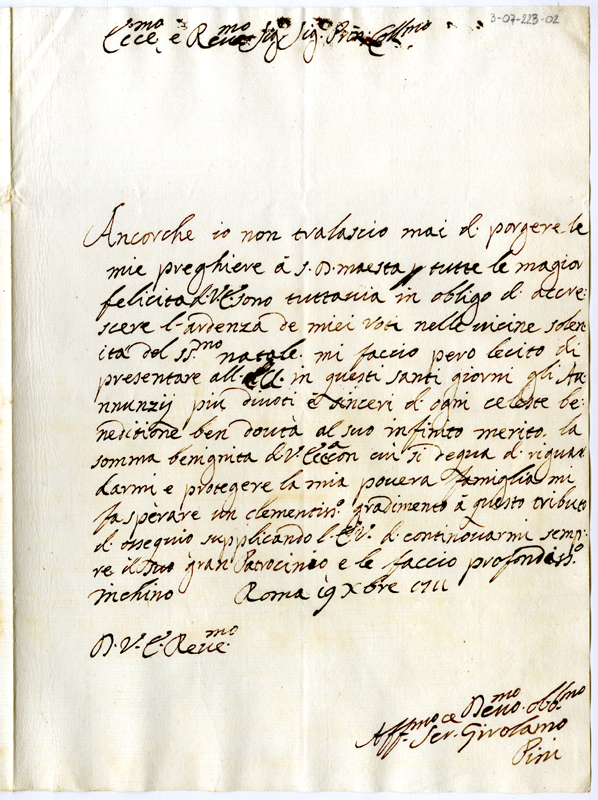 3-07-223-02
Ecce.mo e Reue.mo Sig.r Sig.r Prõn Coll.mo
Ancorche io non tralascio mai d. porgere le
mie preghiere á S. D. maesta p tutte le magior
felicita d. V.E. sono tuttauia in obligo d. accre-
scere l'ardenza de miei voti nelle uicine solen
ità del ss.mo natale. mi faccio pero lecito di
presentare all. E.V. in questi santi giorni gli An
nunzij più diuoti e sinceri d. ogni celeste be-
neditione ben douta al suo infinito merito. la
somma benignita d. V. Ecc.a con cui si degna d. riguar
darmi e protegere la mia pouera famiglia mi
fa sperare un clementiss.o gradimento á questo tributo
d. ossequio supplicando l. E.V. d. continouarmi semp-
re il suo gran Patrocinio e le faccio profondiss.o
inchino Roma 19 Xbre 1711
D. V. E. Reue.mo
Aff.mo e Deuo.mo obb.mo
Ser. Girolamo
Pini